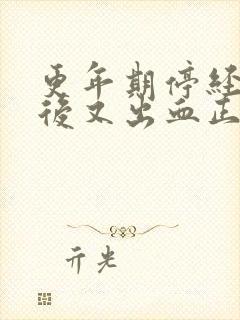 更年期停经
后又出血正
亓光